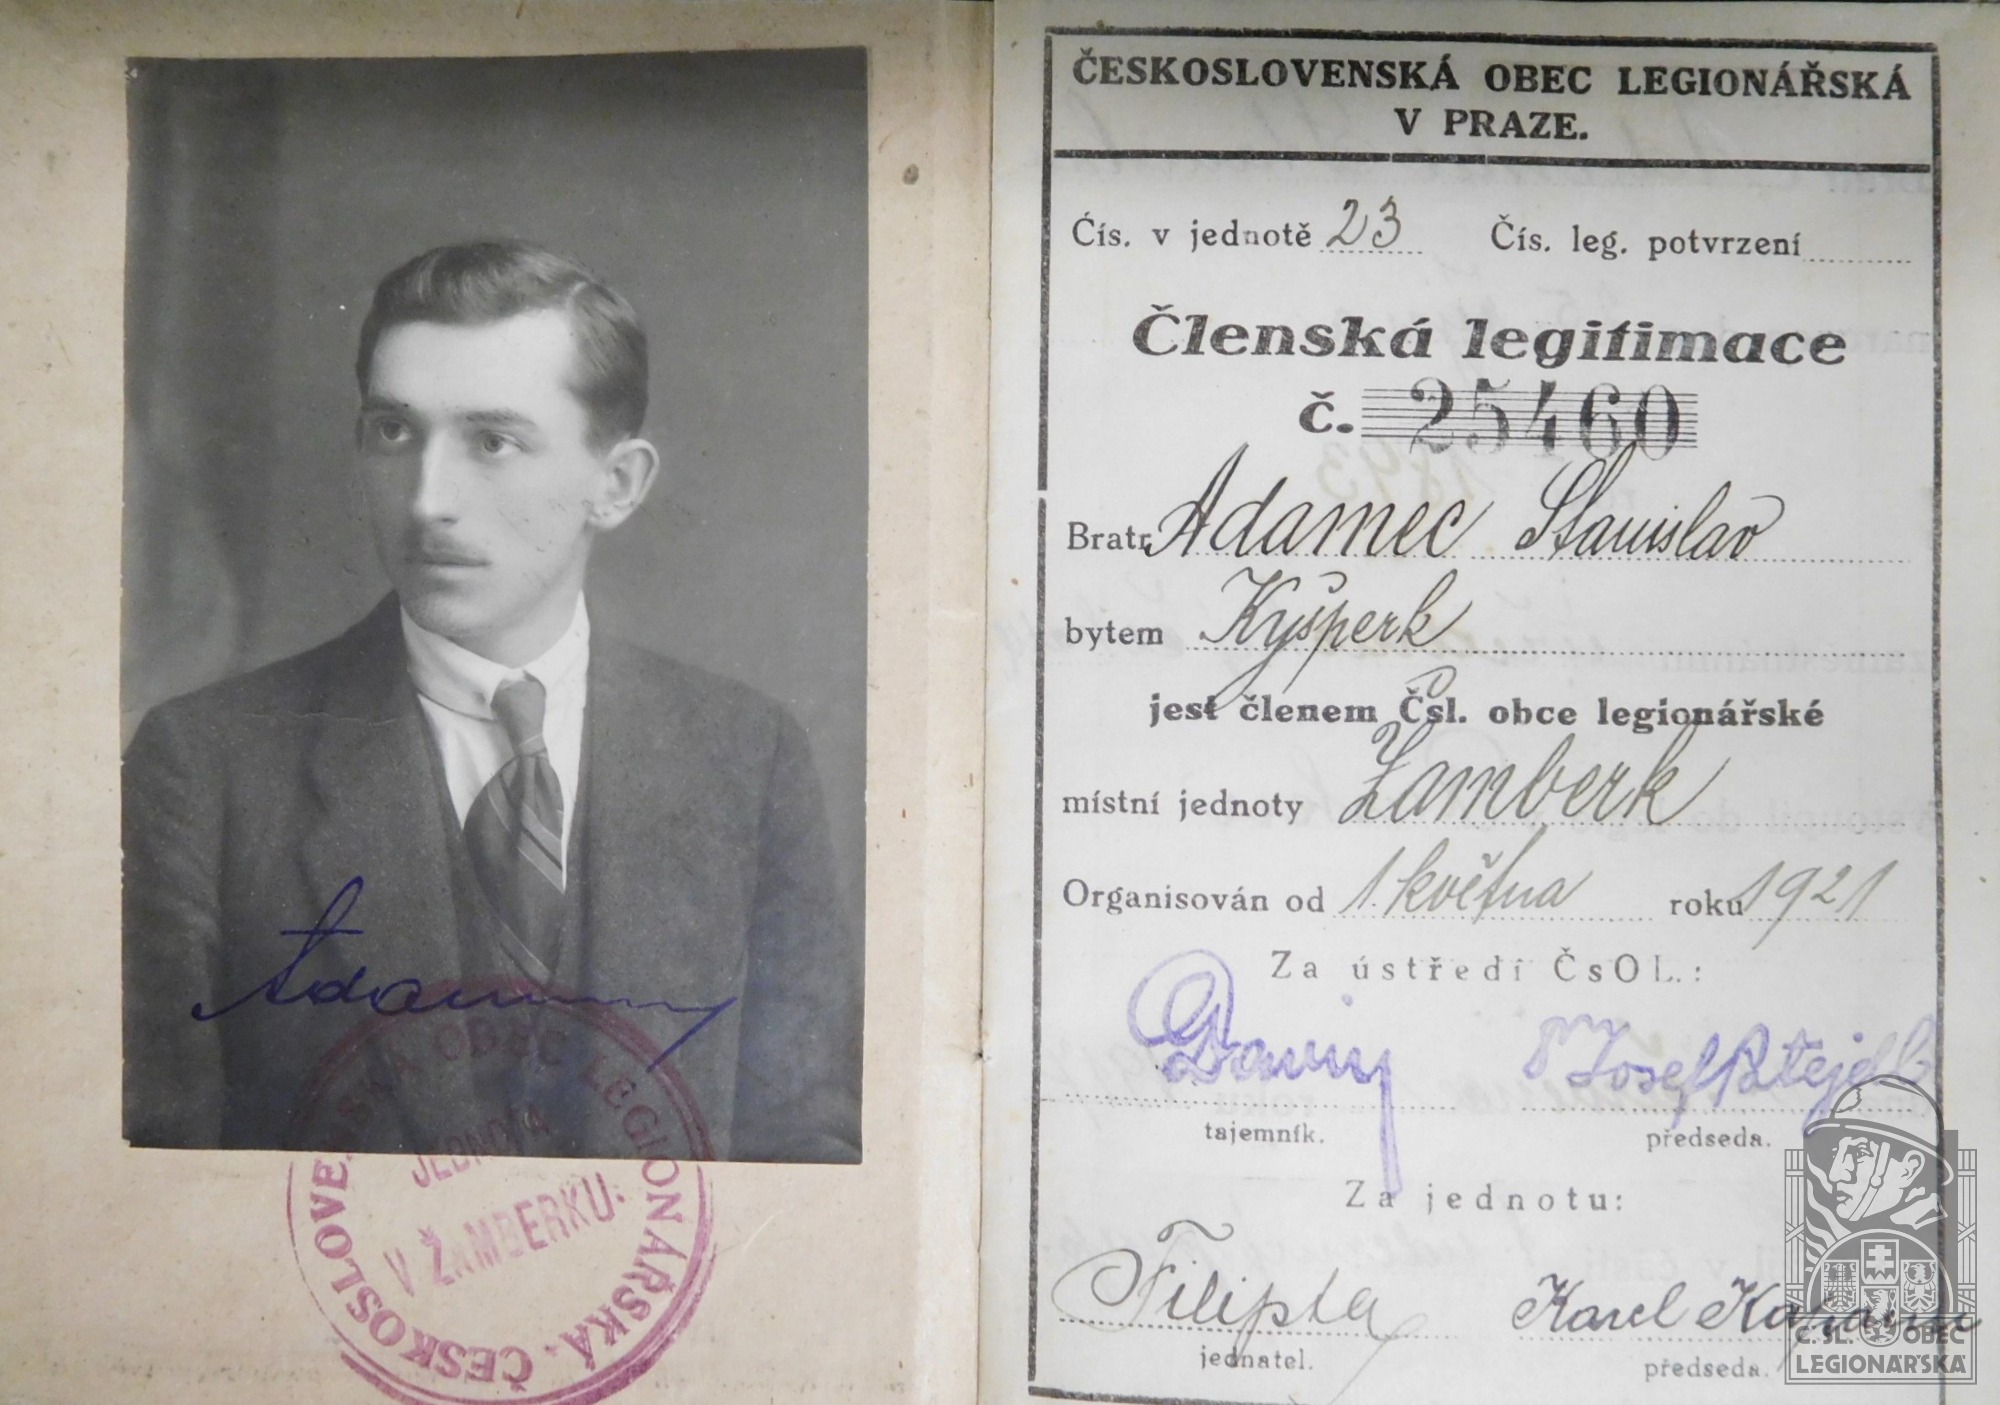 Adamec
ČESKOSLOVENSKÁ OBEC LEGIONÁŘSKÁ
JEDNOTA
V ŽAMBERKU.
ČESKOSLOVENSKÁ OBEC LEGIONÁŘSKÁ
V PRAZE.
Čís. v jednotě 23 Čís. leg. potvrzení
Členská legitimace
č. 25460
Bratr Adamec Stanislav
bytem Kyšperk
jest členem Čsl. obce legionářské
místní jednoty Žamberk
Organisován od 1. května roku 1921
Za ústředí ČsOL.:
Josef
tajemník. předseda.
Za jednotu:
Karel
jednatel. předseda.
Č. SL. OBEC
LEGIONÁŘSKÁ